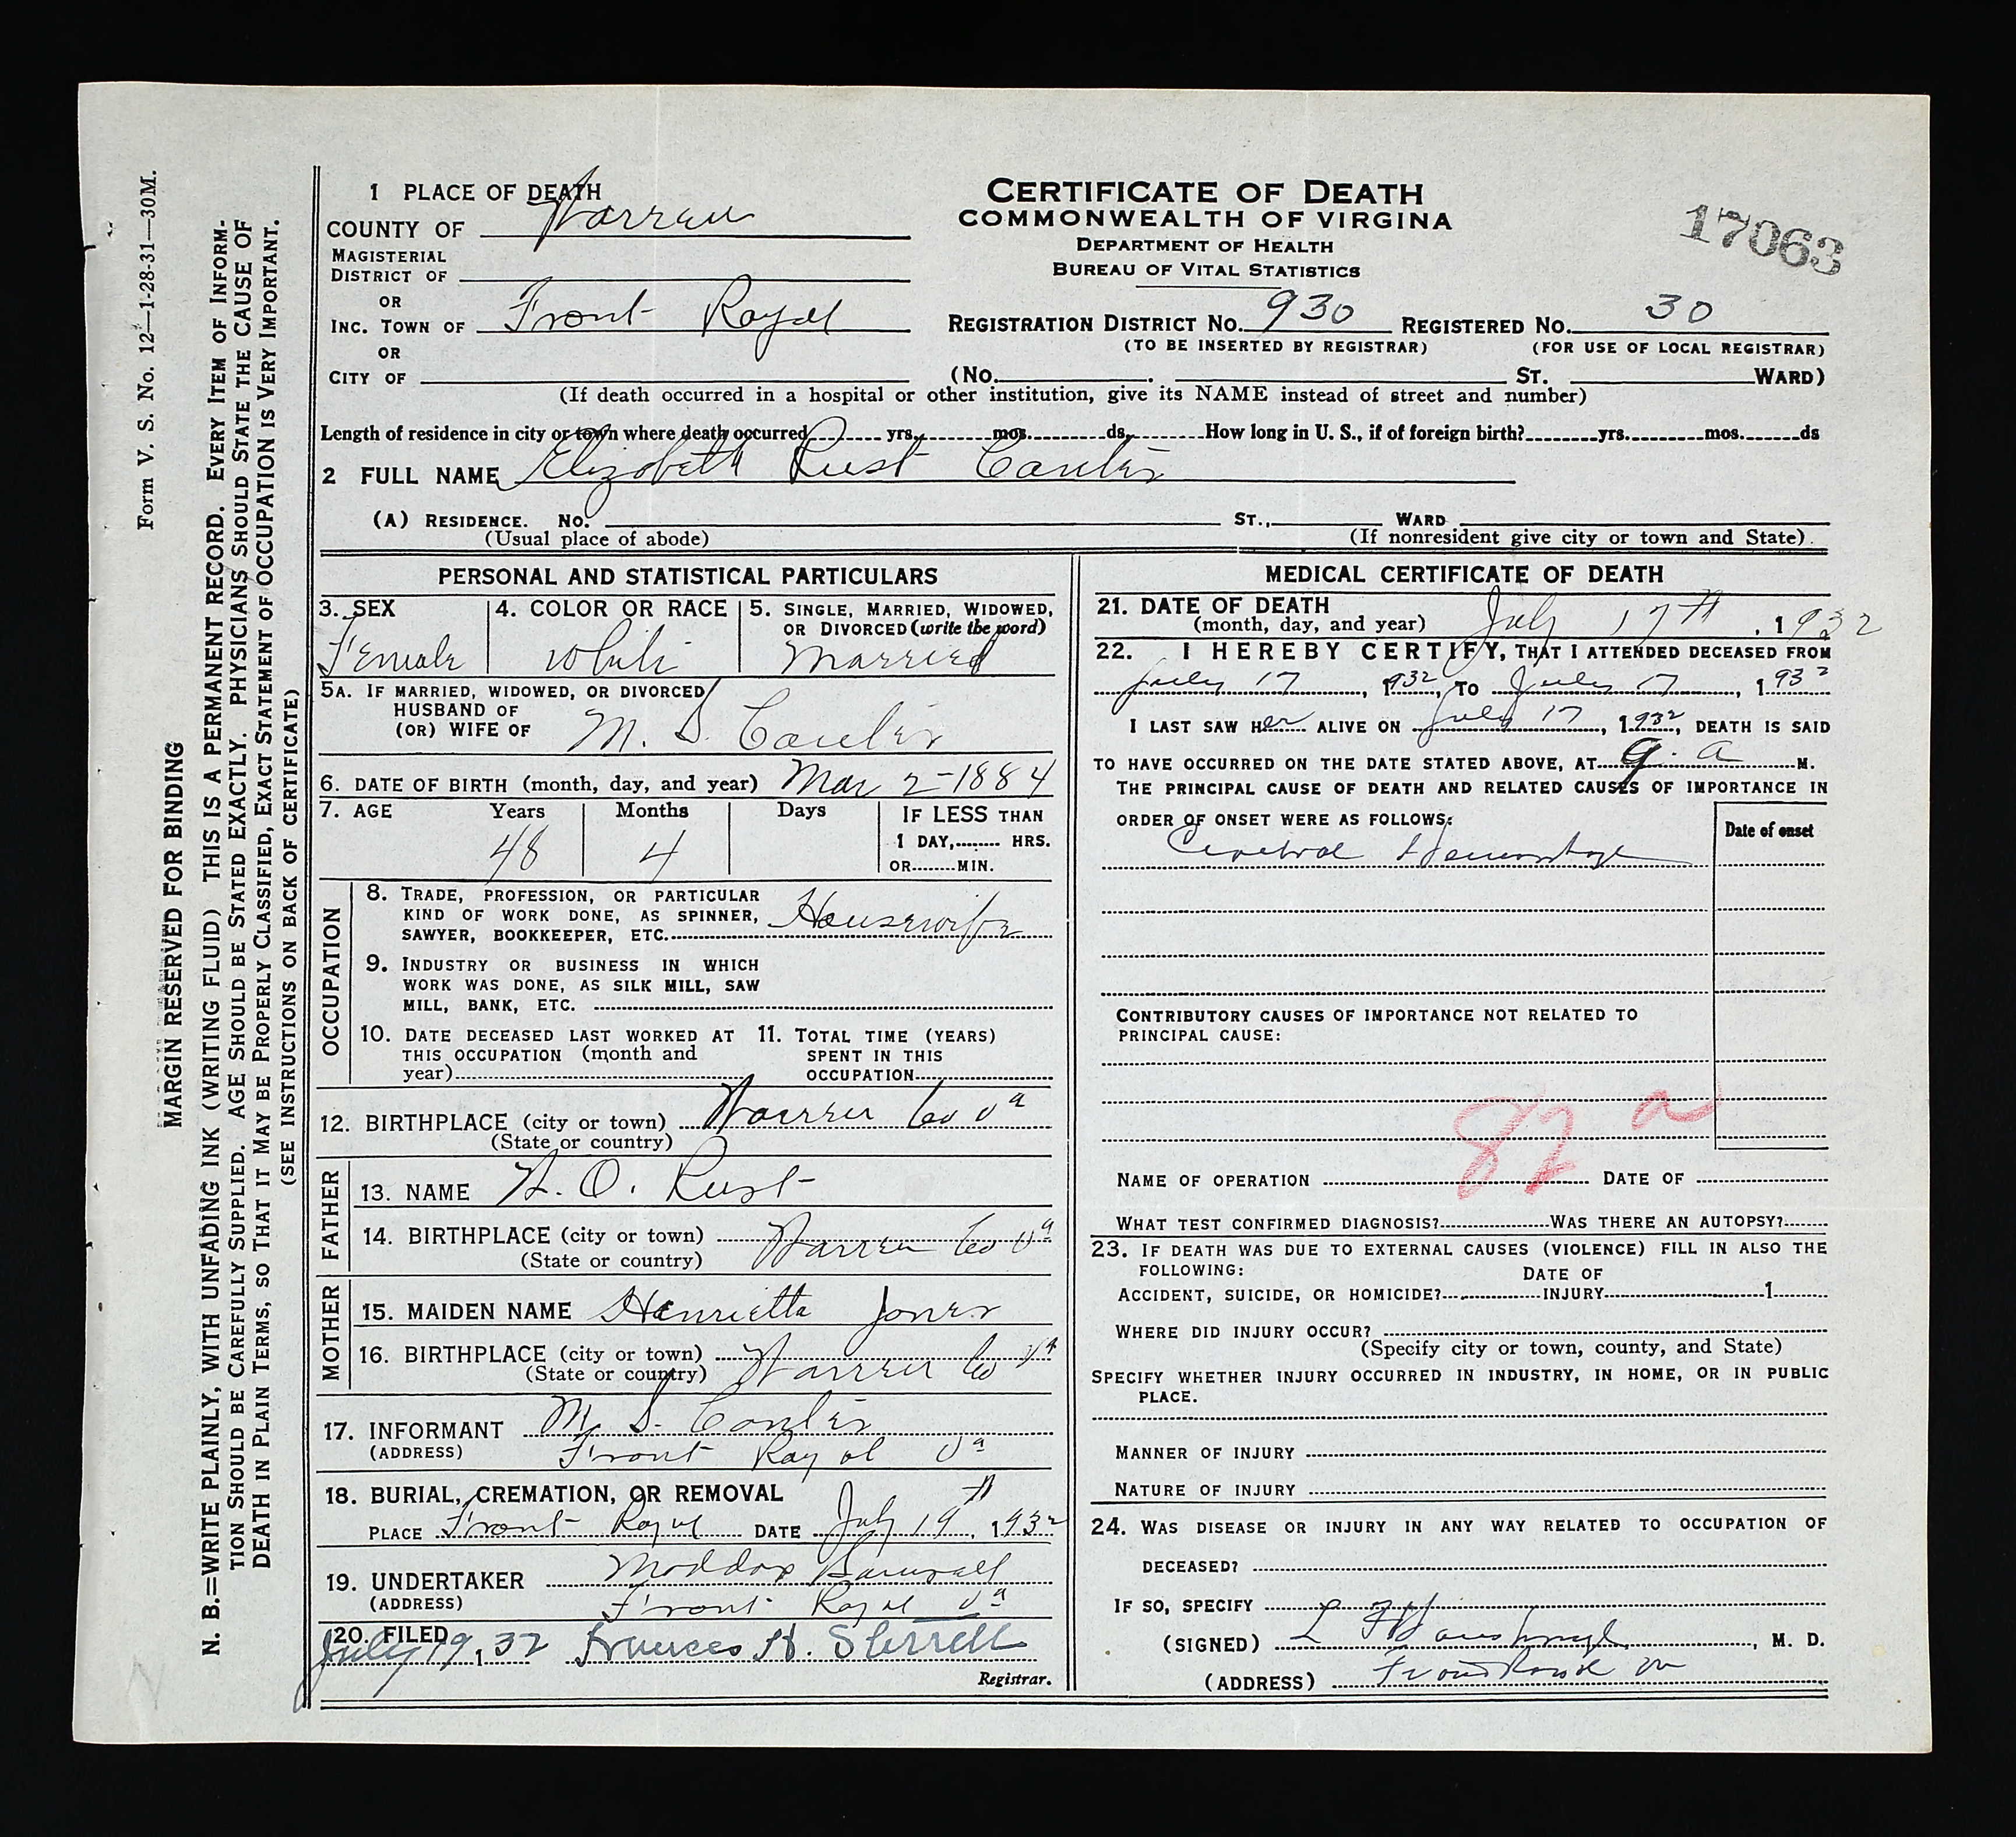 Form V. S. No. 12—1-28-31—30M.
MARGIN RESERVED FOR BINDING
N. B.=WRITE PLAINLY, WITH UNFADING INK (WRITING FLUID) THIS IS A PERMANENT RECORD. EVERY ITEM OF INFORM-
TION SHOULD BE CAREFULLY SUPPLIED. AGE SHOULD BE STATED EXACTLY. PHYSICIANS SHOULD STATE THE CAUSE OF
DEATH IN PLAIN TERMS, SO THAT IT MAY BE PROPERLY CLASSIFIED, EXACT STATEMENT OF OCCUPATION IS VERY IMPORTANT.
(SEE INSTRUCTIONS ON BACK OF CERTIFICATE)
CERTIFICATE OF DEATH
COMMONWEALTH OF VIRGINA
DEPARTMENT OF HEALTH
BUREAU OF VITAL STATISTICS
17063
1 PLACE OF DEATH
COUNTY OF Warren
MAGISTERIAL
DISTRICT OF
OR
INC. TOWN OF Front Royal
REGISTRATION DISTRICT NO. 930 REGISTERED NO. 30
(TO BE INSERTED BY REGISTRAR) (FOR USE OF LOCAL REGISTRAR)
OR
CITY OF (No. ST. WARD)
(If death occurred in a hospital or other institution, give its NAME instead of street and number)
Length of residence in city or town where death occurred yrs. mos. ds. How long in U. S., if of foreign birth? yrs. mos. ds
2 FULL NAME Elizabeth Rust
(A) RESIDENCE. NO. ST., WARD
(Usual place of abode) (If nonresident give city or town and State).
PERSONAL AND STATISTICAL PARTICULARS
3. SEX 4. COLOR OR RACE 5. SINGLE, MARRIED, WIDOWED,
OR DIVORCED (write the word)
Female White Married
5A. IF MARRIED, WIDOWED, OR DIVORCED
HUSBAND OF
(OR) WIFE OF M. S.
6. DATE OF BIRTH (month, day, and year) Mar 2-1884
7. AGE Years Months Days IF LESS THAN
48 4 1 DAY, HRS.
OR MIN.
OCCUPATION
8. TRADE, PROFESSION, OR PARTICULAR
KIND OF WORK DONE, AS SPINNER,
SAWYER, BOOKKEEPER, ETC. Housewife
9. INDUSTRY OR BUSINESS IN WHICH
WORK WAS DONE, AS SILK MILL, SAW
MILL, BANK, ETC.
10. DATE DECEASED LAST WORKED AT 11. TOTAL TIME (YEARS)
THIS OCCUPATION (month and SPENT IN THIS
year) OCCUPATION
12. BIRTHPLACE (city or town) Warren Co Va
(State or country)
FATHER
13. NAME O. Rust
14. BIRTHPLACE (city or town) Warren Co Va
(State or country)
MOTHER
15. MAIDEN NAME Henrietta Jones
16. BIRTHPLACE (city or town) Warren Co Va
(State or country)
17. INFORMANT M. S.
(ADDRESS) Front Royal Va
18. BURIAL, CREMATION, OR REMOVAL
PLACE Front Royal DATE July 19th, 1932
19. UNDERTAKER Maddox
(ADDRESS) Front Royal Va
20. FILED
July 19, 32 Frances H.
Registrar.
MEDICAL CERTIFICATE OF DEATH
21. DATE OF DEATH
(month, day, and year) July 17th, 1932
22. I HEREBY CERTIFY, THAT I ATTENDED DECEASED FROM
July 17, 1932, TO July 17, 1932
I LAST SAW Her ALIVE ON July 17, 1932, DEATH IS SAID
TO HAVE OCCURRED ON THE DATE STATED ABOVE, AT 9. a M.
THE PRINCIPAL CAUSE OF DEATH AND RELATED CAUSES OF IMPORTANCE IN
ORDER OF ONSET WERE AS FOLLOWS: Date of onset
Cerebral Hemorrhage
CONTRIBUTORY CAUSES OF IMPORTANCE NOT RELATED TO
PRINCIPAL CAUSE:
82 a
NAME OF OPERATION DATE OF
WHAT TEST CONFIRMED DIAGNOSIS? WAS THERE AN AUTOPSY?
23. IF DEATH WAS DUE TO EXTERNAL CAUSES (VIOLENCE) FILL IN ALSO THE
FOLLOWING: DATE OF
ACCIDENT, SUICIDE, OR HOMICIDE? INJURY 1
WHERE DID INJURY OCCUR?
(Specify city or town, county, and State)
SPECIFY WHETHER INJURY OCCURRED IN INDUSTRY, IN HOME, OR IN PUBLIC
PLACE.
MANNER OF INJURY
NATURE OF INJURY
24. WAS DISEASE OR INJURY IN ANY WAY RELATED TO OCCUPATION OF
DECEASED?
IF SO, SPECIFY
(SIGNED) , M. D.
(ADDRESS) Front Royal Va